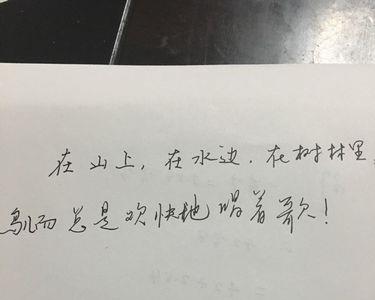 在山上，在水边，在树林里，
鸟儿总是欢快地唱着歌！